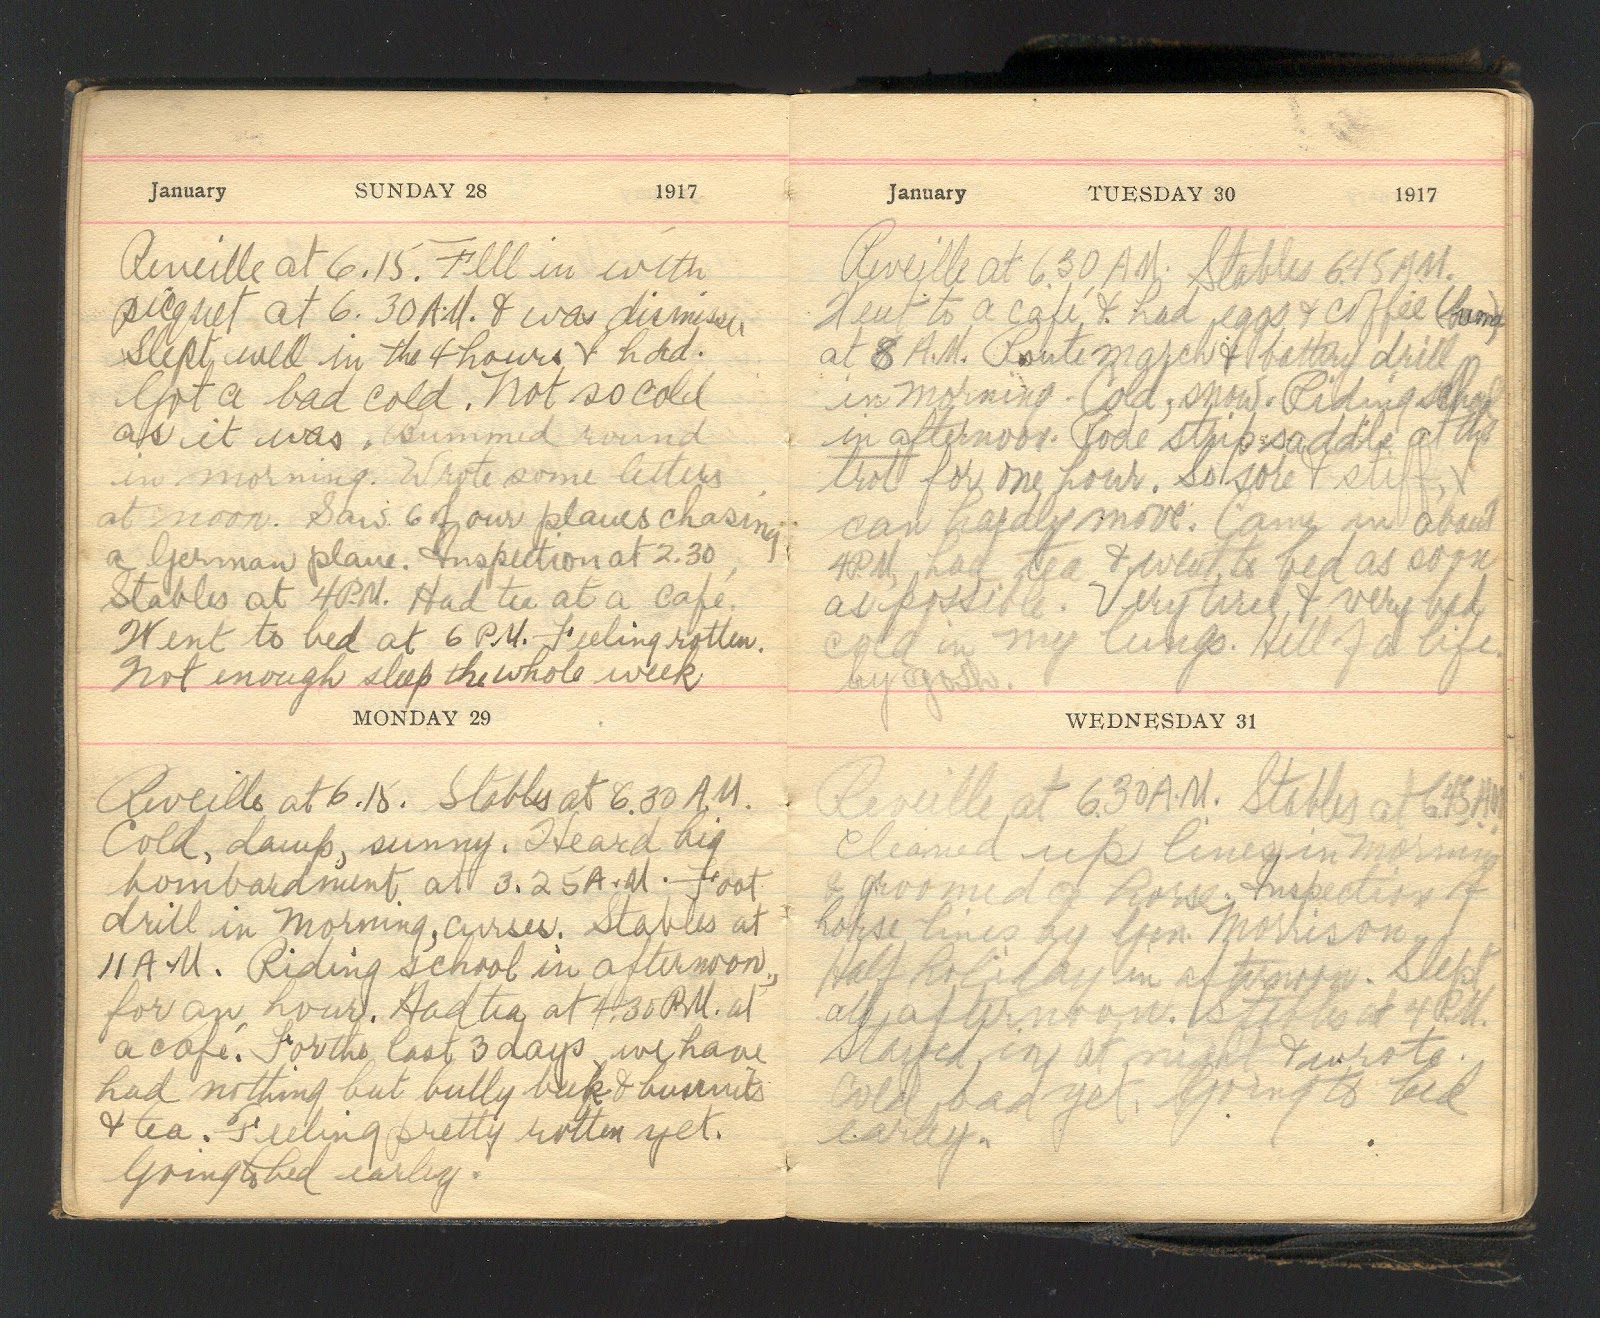 January SUNDAY 28 1917
Reveille at 6.15. Fell in with
picquet at 6.30 A.M. & was dismissed
Slept well in the 4 hours I had.
Got a bad cold. Not so cold
as it was. Bummed round
in morning. Wrote some letters
at noon. Saw 6 of our planes chasing
a German plane. Inspection at 2.30,
Stables at 4 P.M. Had tea at a café.
Went to bed at 6 P.M. Feeling rotten.
Not enough sleep the whole week
MONDAY 29
Reveille at 6.15. Stables at 6.30 A.M.
Cold, damp, sunny. Heard big
bombardment at 3.25 A.M. Foot
drill in morning, curses. Stables at
11 A.M. Riding school in afternoon,
for an hour. Had tea at 4.30 P.M. at
a café. For the last 3 days we have
had nothing but bully beef & biscuits
& tea. Feeling pretty rotten yet.
Going to bed earley.
January TUESDAY 30 1917
Reveille at 6.30 A.M. Stables 6.45 A.M.
Went to a café & had eggs & coffee
at 8 A.M. Route march & battery drill
in morning. Cold, snow. Riding school
in afternoon. Rode strip saddle at the
trot for one hour. So sore & stiff, I
can hardly move. Came in about
4 P.M. had tea & went to bed as soon
as possible. Very tired & very bad
cold in my lungs. Hell of a life.
by gosh.
WEDNESDAY 31
Reveille at 6.30 A.M. Stables at 6.45 A.M.
Cleaned up lines in morning
& groomed a horse. Inspection of
horse lines by Gen. Morrison.
Half holiday in afternoon. Slept
all afternoon. Stables at 4 P.M.
Stayed in at night & wrote.
Cold bad yet. Going to bed
earley.